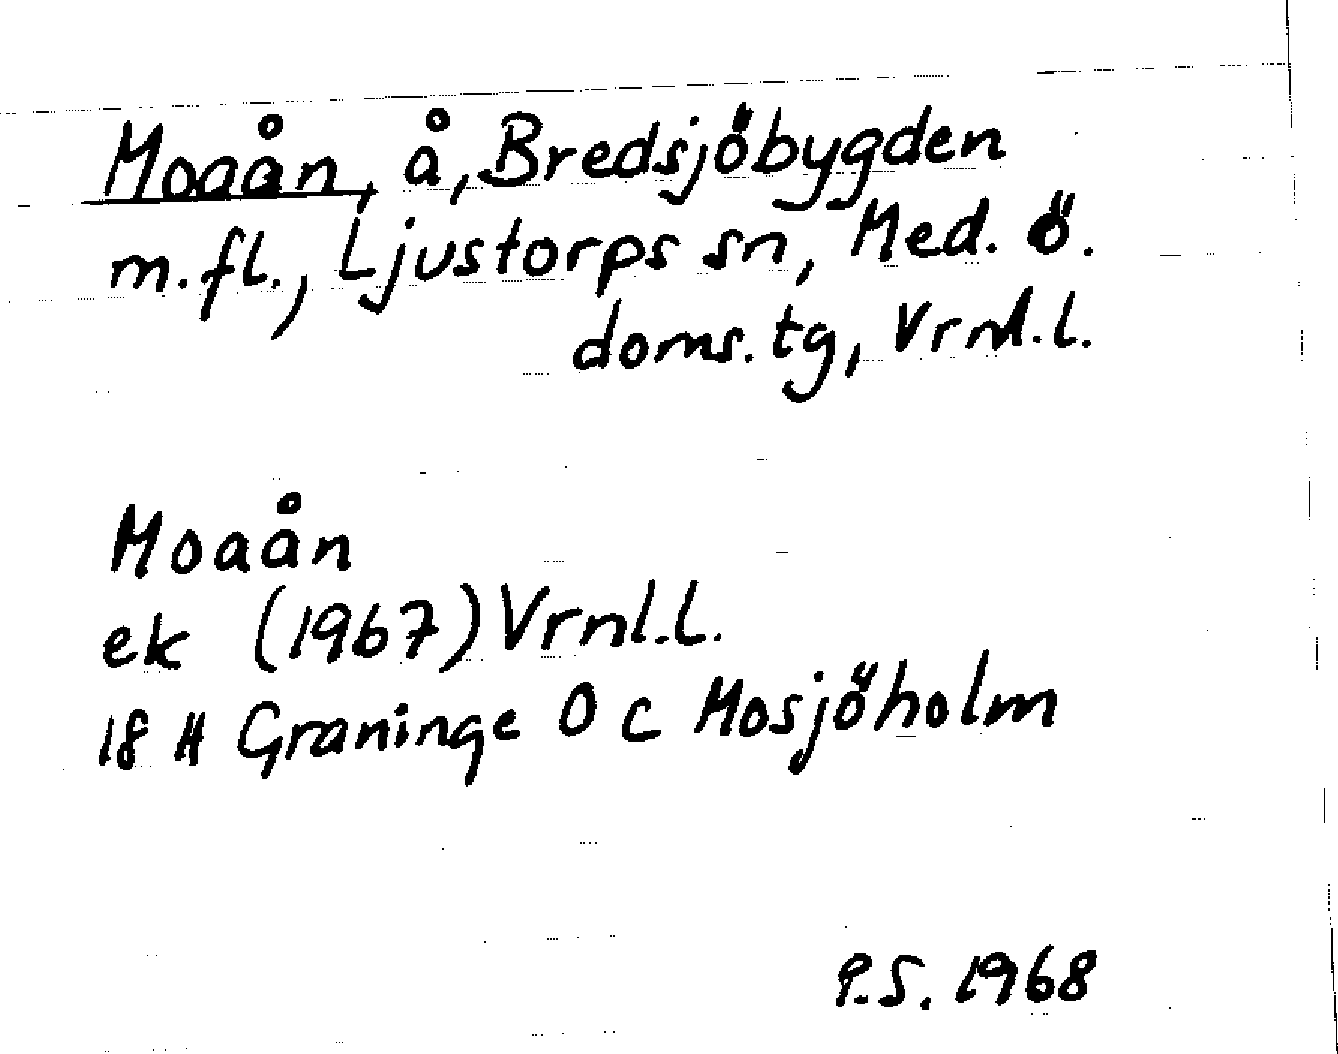 Moaån, å, Bredsjöbygden
m.fl., Ljustorps sn, Med. ö.
doms.tg, Vrnl.l.
Moaån
ek (1967) Vrnl.l.
18 H Graninge O c Mosjöholm
P.S. 1968